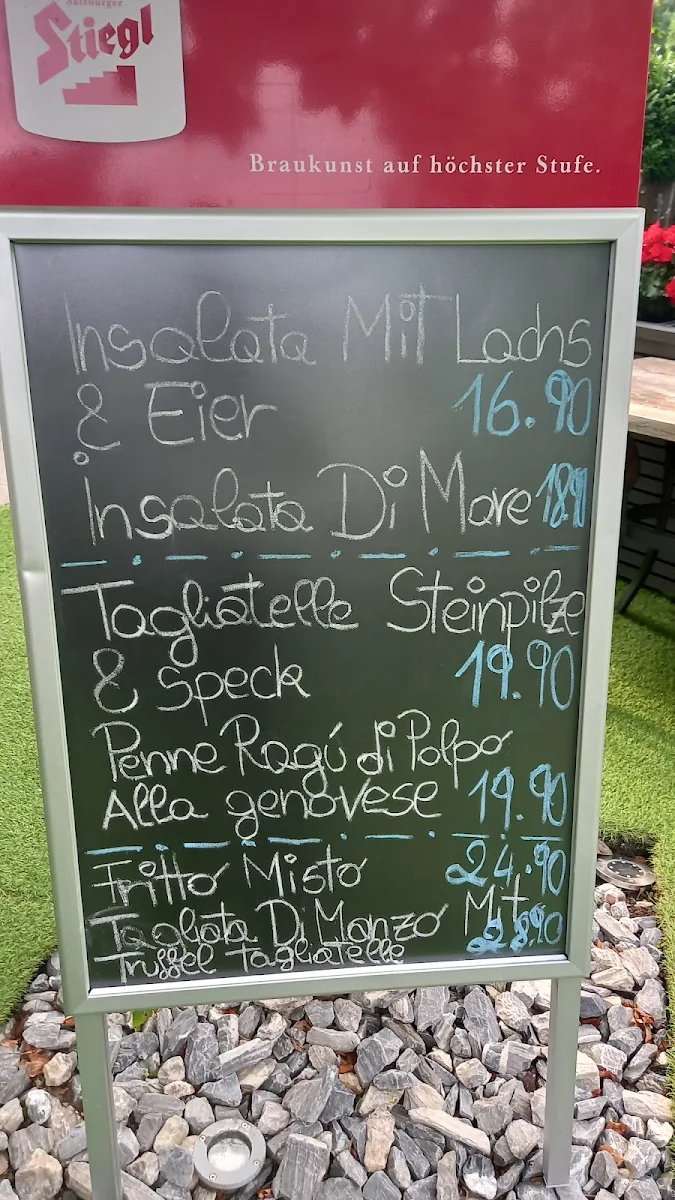 Salzburger
Stiegl
Braukunst auf höchster Stufe.
Insalata Mit Lachs
& Eier 16.90
Insalata Di Mare
Tagliatelle Steinpilze
& Speck 19.90
Penne Ragú di Polpo
Alla genovese 19.90
Fritto Misto 24.90
Tagliata Di Manzo Mit
Trüffel Tagliatelle 28.90